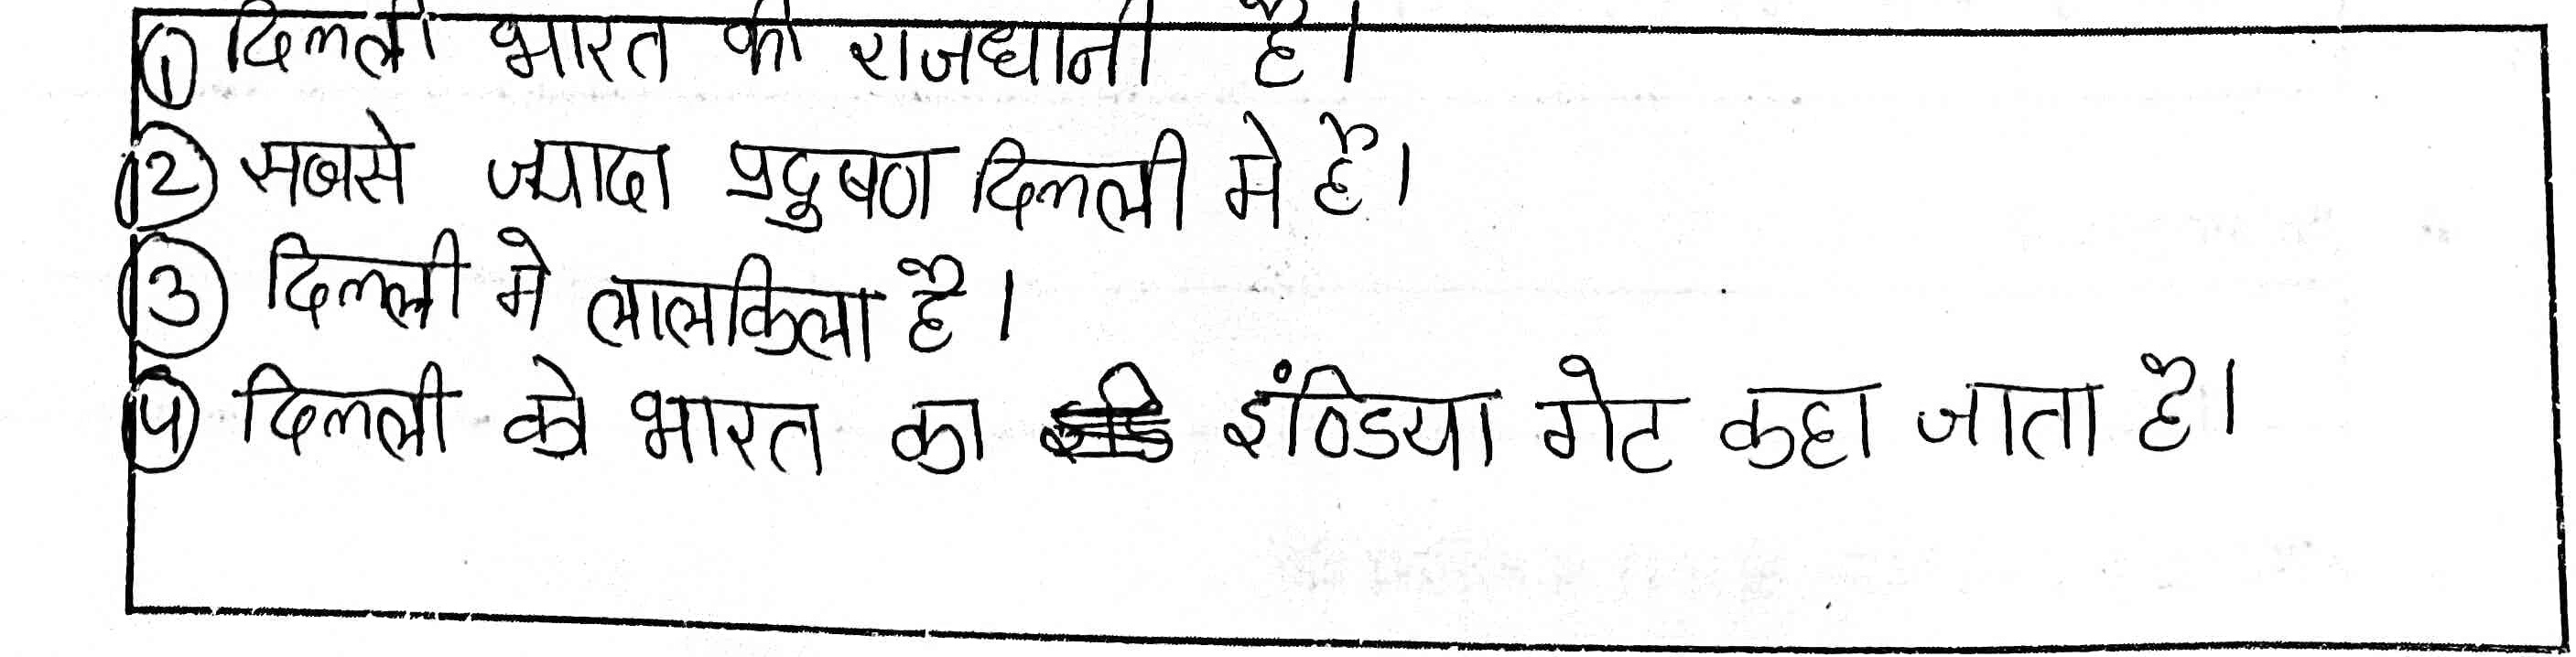 ① दिल्ली भारत की राजधानी है।
② सबसे ज्यादा प्रदुषण दिल्ली मे है।
③ दिल्ली मे लालकिला है।
④ दिल्ली को भारत का इंण्डिया गेट कहा जाता है।